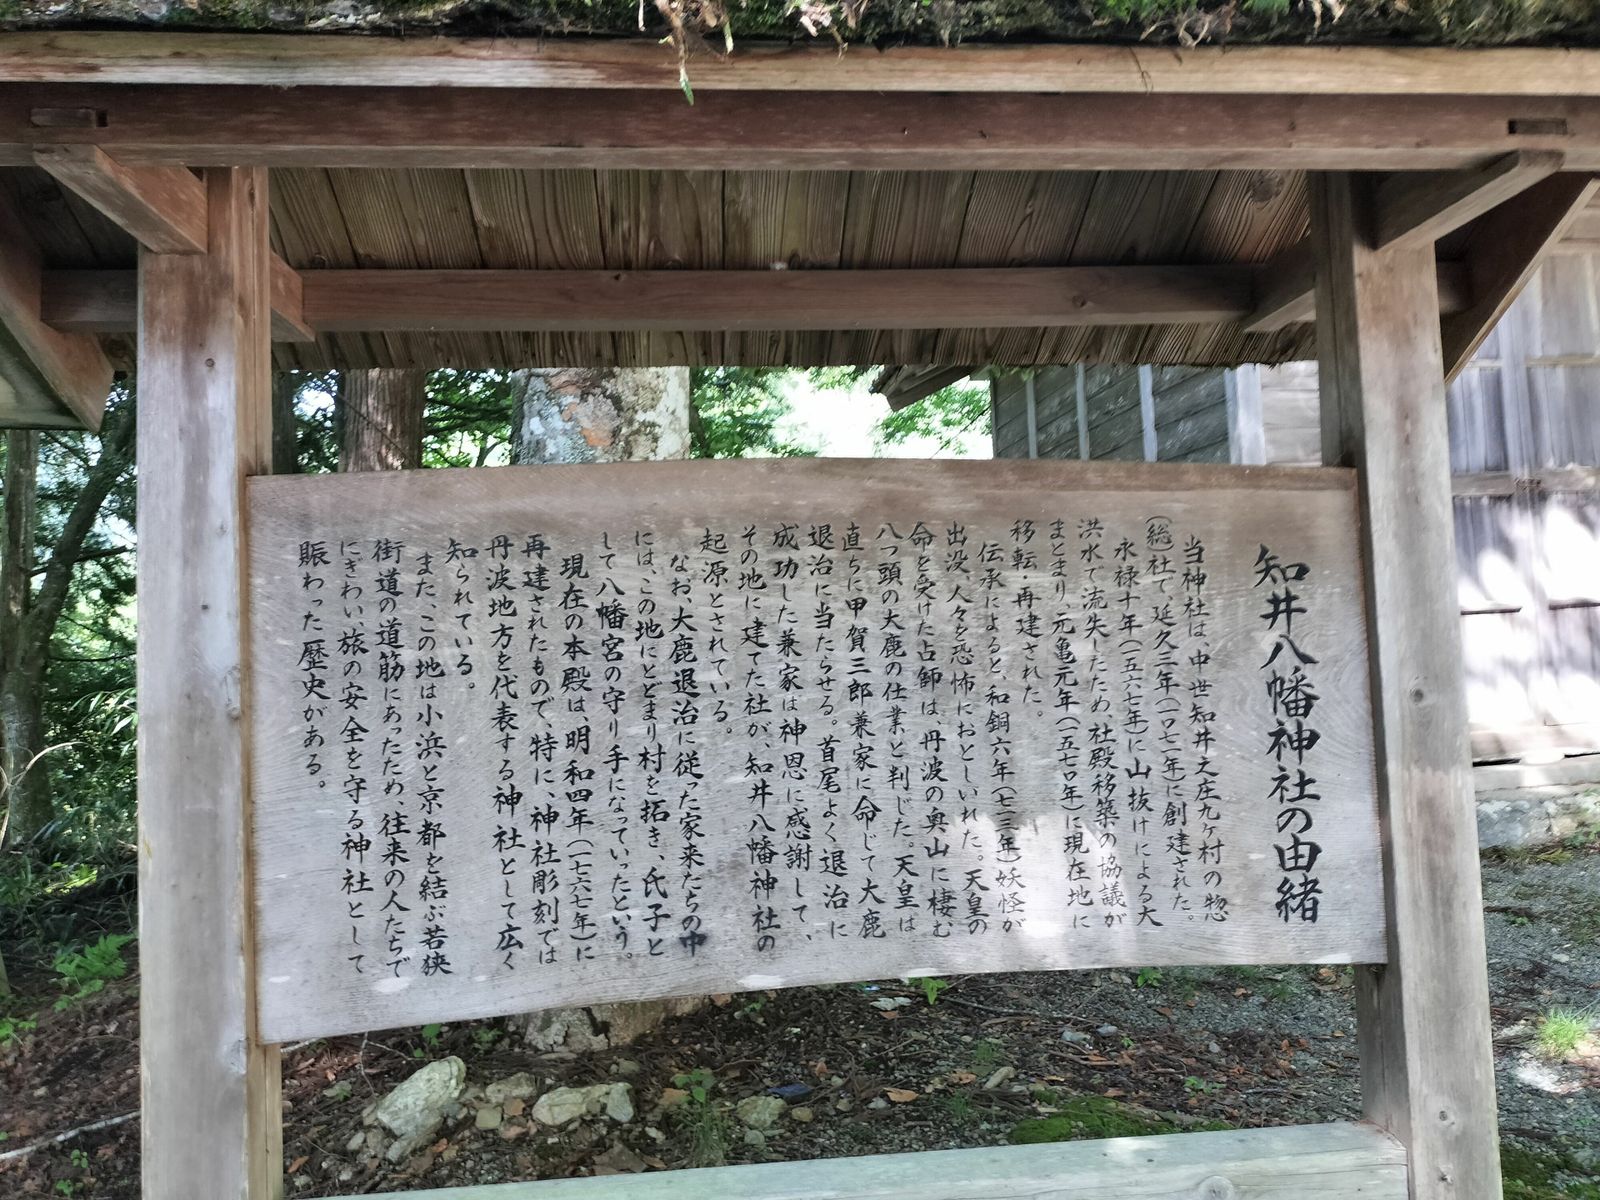 知井八幡神社の由緒
当神社は、中世知井之庄九ヶ村の惣
(総)社で、延久三年(一〇七一年)に創建された。
永禄十年(一五六七年)に山抜けによる大
洪水で流失したため、社殿移築の協議が
まとまり、元亀元年(一五七〇年)に現在地に
移転・再建された。
伝承によると、和銅六年(七一三年)妖怪が
出没、人々を恐怖におとしいれた。天皇の
命を受けた占師は、丹波の奥山に棲む
八つ頭の大鹿の仕業と判じた。天皇は
直らに甲賀三郎兼家に命じて大鹿
退治に当たらせる。首尾よく退治に
成功した兼家は神恩に感謝して、
その地に建てた社が、知井八幡神社の
起源とされている。
なお、大鹿退治に従った家来たちの中
には、この地にとどまり村を拓き、氏子と
して八幡宮の守り手になっていったという。
現在の本殿は、明和四年(一七六七年)に
再建されたもので、特に、神社彫刻では
丹波地方を代表する神社として広く
知られている。
また、この地は小浜と京都を結ぶ若狭
街道の道筋にあったため、往来の人たちで
にぎわい、旅の安全を守る神社として
賑わった歴史がある。